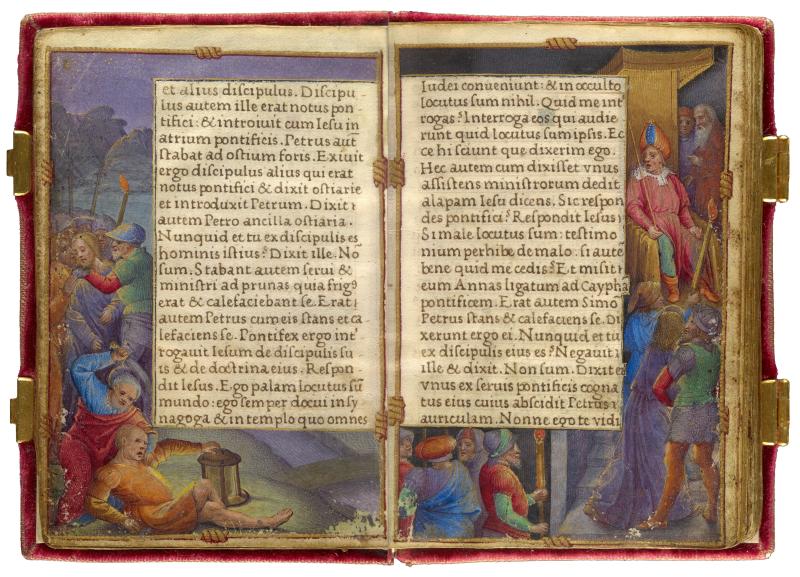 et alius discipulus. Discipu
lus autem ille erat notus pon
tifici: & introiuit cum Iesu in
atrium pontificis. Petrus aut
stabat ad ostium foris. Exiuit
ergo discipulus alius qui erat
notus pontifici & dixit ostiarie
et introduxit Petrum. Dixit
autem Petro ancilla ostiaria.
Nunquid et tu ex discipulis es
hominis istius? Dixit ille. No
sum. Stabant autem serui &
ministri ad prunas quia frigꝰ
erat & calefaciebant se. Erat
autem Petrus cum eis stans et ca
lefaciens se. Pontifex ergo int
rogauit Iesum de discipulis su
is & de doctrina eius. Respon
dit Iesus. Ego palam locutus sū
mundo: ego semper docui in sy
nagoga & in templo quo omnes
Iudei conueniunt: & in occulto
locutus sum nihil. Quid me int
rogas? Interroga eos qui audie
runt quid locutus sum ipsis. Ec
ce hi sciunt que dixerim ego.
Hec autem cum dixisset vnus
assistens ministrorum dedit
alapam Iesu dicens. Sic respon
des pontifici? Respondit Iesus
Si male locutus sum: testimo
nium perhibe de malo. si autē
bene quid me cedis? Et misit
eum Annas ligatum ad Caypha
pontificem. Erat autem Simo
Petrus stans & calefaciens se. Di
xerunt ergo ei. Nunquid et tu
ex discipulis eius es? Negauit
ille & dixit. Non sum. Dixit
vnus ex seruis pontificis cogna
tus eius cuius abscidit Petrus
auriculam. Nonne ego te vidi